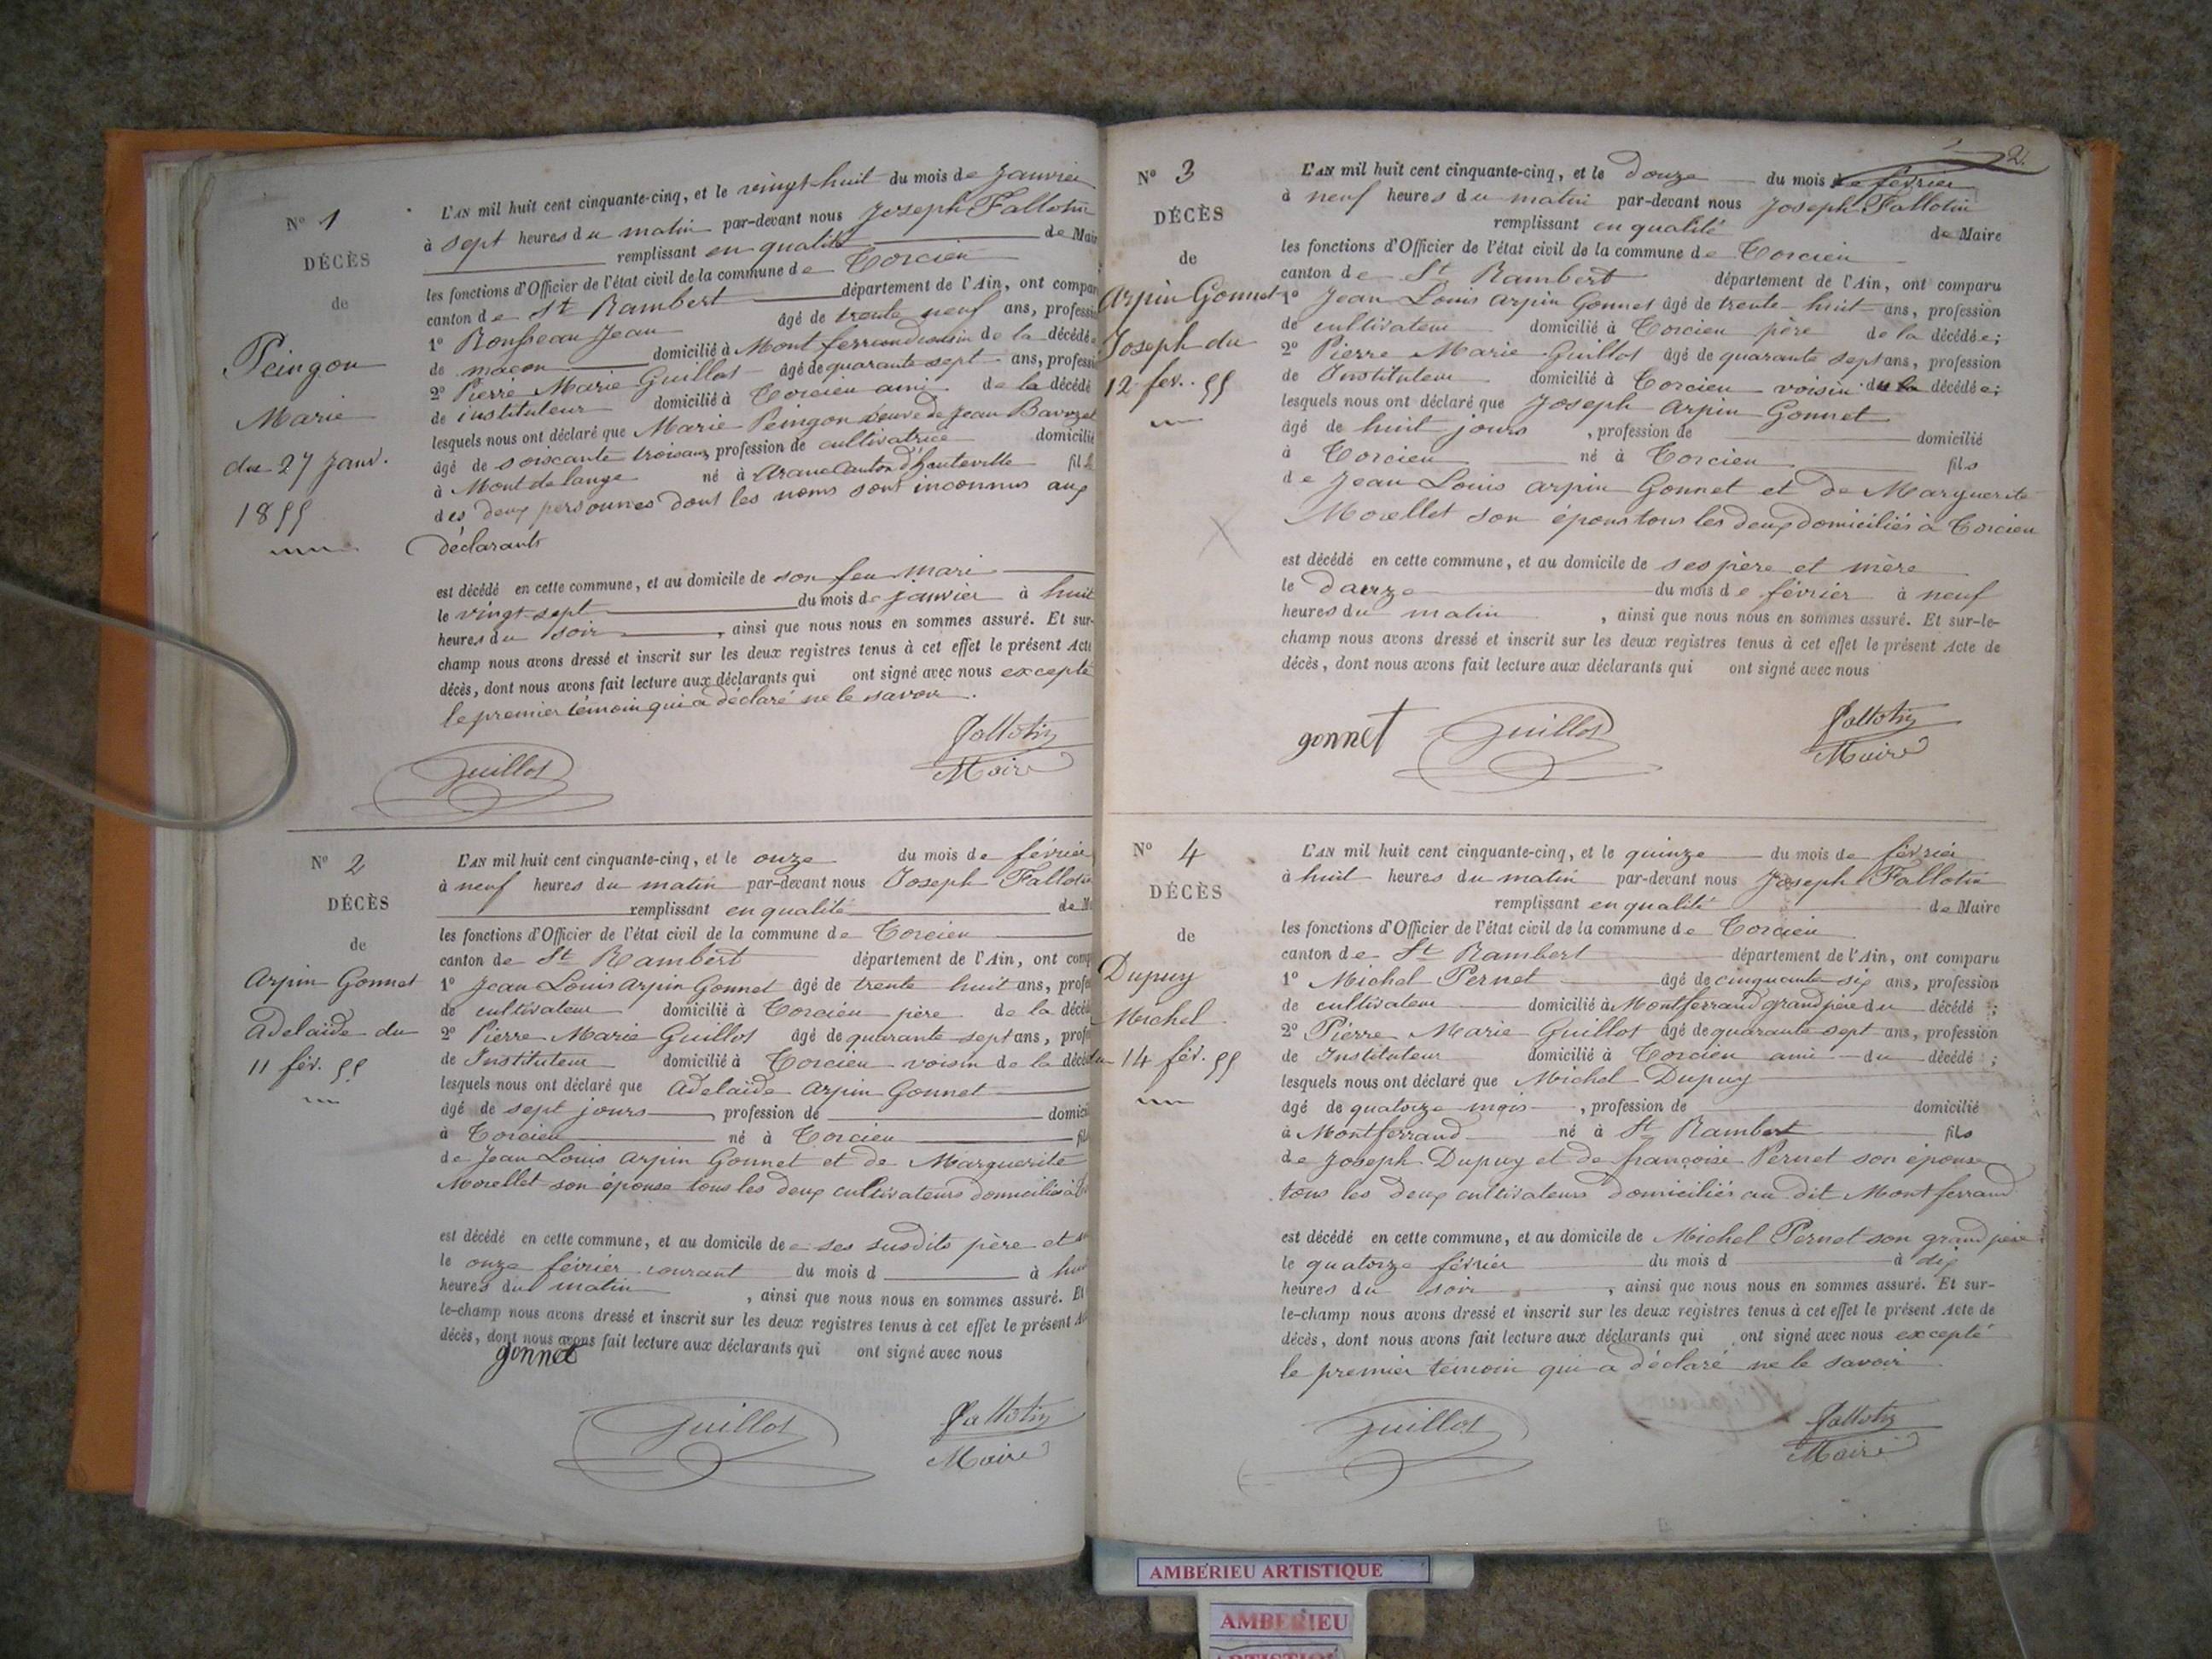 N° 1
DÉCÈS
de
Peingon
Marie
du 27 Janv.
1855
L'AN mil huit cent cinquante-cinq, et le vingt-huit du mois de Janvier
à sept heures du matin par-devant nous Joseph Fallotin
remplissant en qualité de Mair
les fonctions d'Officier de l'état civil de la commune de Torcieu
canton de St Rambert département de l'Ain, ont compar
1° Jean âgé de trente neuf ans, professi
de maçon domicilié à Montferrand de la décédée
2° Pierre Marie Guillot âgé de quarante sept ans, professi
de instituteur domicilié à Torcieu ami de la décédé
lesquels nous ont déclaré que Marie Peingon veuve de Jean
âgé de soixante trois ans, profession de cultivatrice domicilié
à Mont de lange né à Aranc canton d'hauteville fille
des deux personnes dont les noms sont inconnus aux
déclarants
est décédé en cette commune, et au domicile de son feu mari
le vingt-sept du mois de janvier à huit
heures du soir, ainsi que nous nous en sommes assuré. Et sur-
champ nous avons dressé et inscrit sur les deux registres tenus à cet effet le présent Acte
décès, dont nous avons fait lecture aux déclarants qui ont signé avec nous excepté
le premier témoin qui a déclaré ne le savoir.
Fallotin
Guillot Maire
N° 2
DÉCÈS
de
Arpin Gonnet
Adelaïde du
11 fév. 55
L'AN mil huit cent cinquante-cinq, et le onze du mois de février
à neuf heures du matin par-devant nous Joseph Fallotin
remplissant en qualité de M
les fonctions d'Officier de l'état civil de la commune de Torcieu
canton de St Rambert département de l'Ain, ont comp
1° Jean Louis Arpin Gonnet âgé de trente huit ans, profe
de cultivateur domicilié à Torcieu père de la décéd
2° Pierre Marie Guillot âgé de quarante sept ans, profe
de Instituteur domicilié à Torcieu voisin de la décéd
lesquels nous ont déclaré que Adelaïde Arpin Gonnet
âgé de sept jours, profession de domici
à Torcieu né à Torcieu fil
de Jean Louis Arpin Gonnet et de Marguerite
Morellet son épouse tous les deux cultivateurs domiciliés à
est décédé en cette commune, et au domicile de ses susdits père et
le onze février courant du mois d à hui
heures du matin, ainsi que nous nous en sommes assuré. Et
le-champ nous avons dressé et inscrit sur les deux registres tenus à cet effet le présent A
décès, dont nous avons fait lecture aux déclarants qui ont signé avec nous
gonnet
Guillot Fallotin
Maire
2
N° 3
DÉCÈS
de
Arpin Gonnet
Joseph du
12 fev. 55
L'AN mil huit cent cinquante-cinq, et le douze du mois de février
à neuf heures du matin par-devant nous Joseph Fallotin
remplissant en qualité de Maire
les fonctions d'Officier de l'état civil de la commune de Torcieu
canton de St Rambert département de l'Ain, ont comparu
1° Jean Louis Arpin Gonnet âgé de trente-huit ans, profession
de cultivateur domicilié à Torcieu père de la décédée;
2° Pierre Marie Guillot âgé de quarante sept ans, profession
de Instituteur domicilié à Torcieu voisin du la décédée;
lesquels nous ont déclaré que Joseph Arpin Gonnet
âgé de huit jours, profession de domicilié
à Torcieu né à Torcieu fils
de Jean Louis Arpin Gonnet et de Marguerite
Morellet son épous tous les deux domiciliés à Torcieu
est décédé en cette commune, et au domicile de ses père et mère
le douze du mois de février à neuf
heures du matin, ainsi que nous nous en sommes assuré. Et sur-le-
champ nous avons dressé et inscrit sur les deux registres tenus à cet effet le présent Acte de
décès, dont nous avons fait lecture aux déclarants qui ont signé avec nous
gonnet Guillot Fallotin
Maire
N° 4
DÉCÈS
de
Dupuy
Michel
du 14 fév. 55
L'AN mil huit cent cinquante-cinq, et le quinze du mois de février
à huit heures du matin par-devant nous Joseph Fallotin
remplissant en qualité de Maire
les fonctions d'Officier de l'état civil de la commune de Torcieu
canton de St Rambert département de l'Ain, ont comparu
1° Michel Pernet âgé de cinquante-six ans, profession
de cultivateur domicilié à Montferrand grand père du décédé;
2° Pierre Marie Guillot âgé de quarante-sept ans, profession
de Instituteur domicilié à Torcieu ami du décédé;
lesquels nous ont déclaré que Michel Dupuy
âgé de quatorze mois, profession de domicilié
à Montferrand né à St Rambert fils
de Joseph Dupuy et de françoise Pernet son épouse
tous les deux cultivateurs domiciliés au dit Montferrand
est décédé en cette commune, et au domicile de Michel Pernet son grand père
le quatorze février du mois d à dix
heures du soir, ainsi que nous nous en sommes assuré. Et sur-
le-champ nous avons dressé et inscrit sur les deux registres tenus à cet effet le présent Acte de
décès, dont nous avons fait lecture aux déclarants qui ont signé avec nous excepté
le premier témoin qui a déclaré ne le savoir
Guillot Fallotin
Maire
AMBERIEU ARTISTIQUE
AMBERIEU
ARTISTIQUE